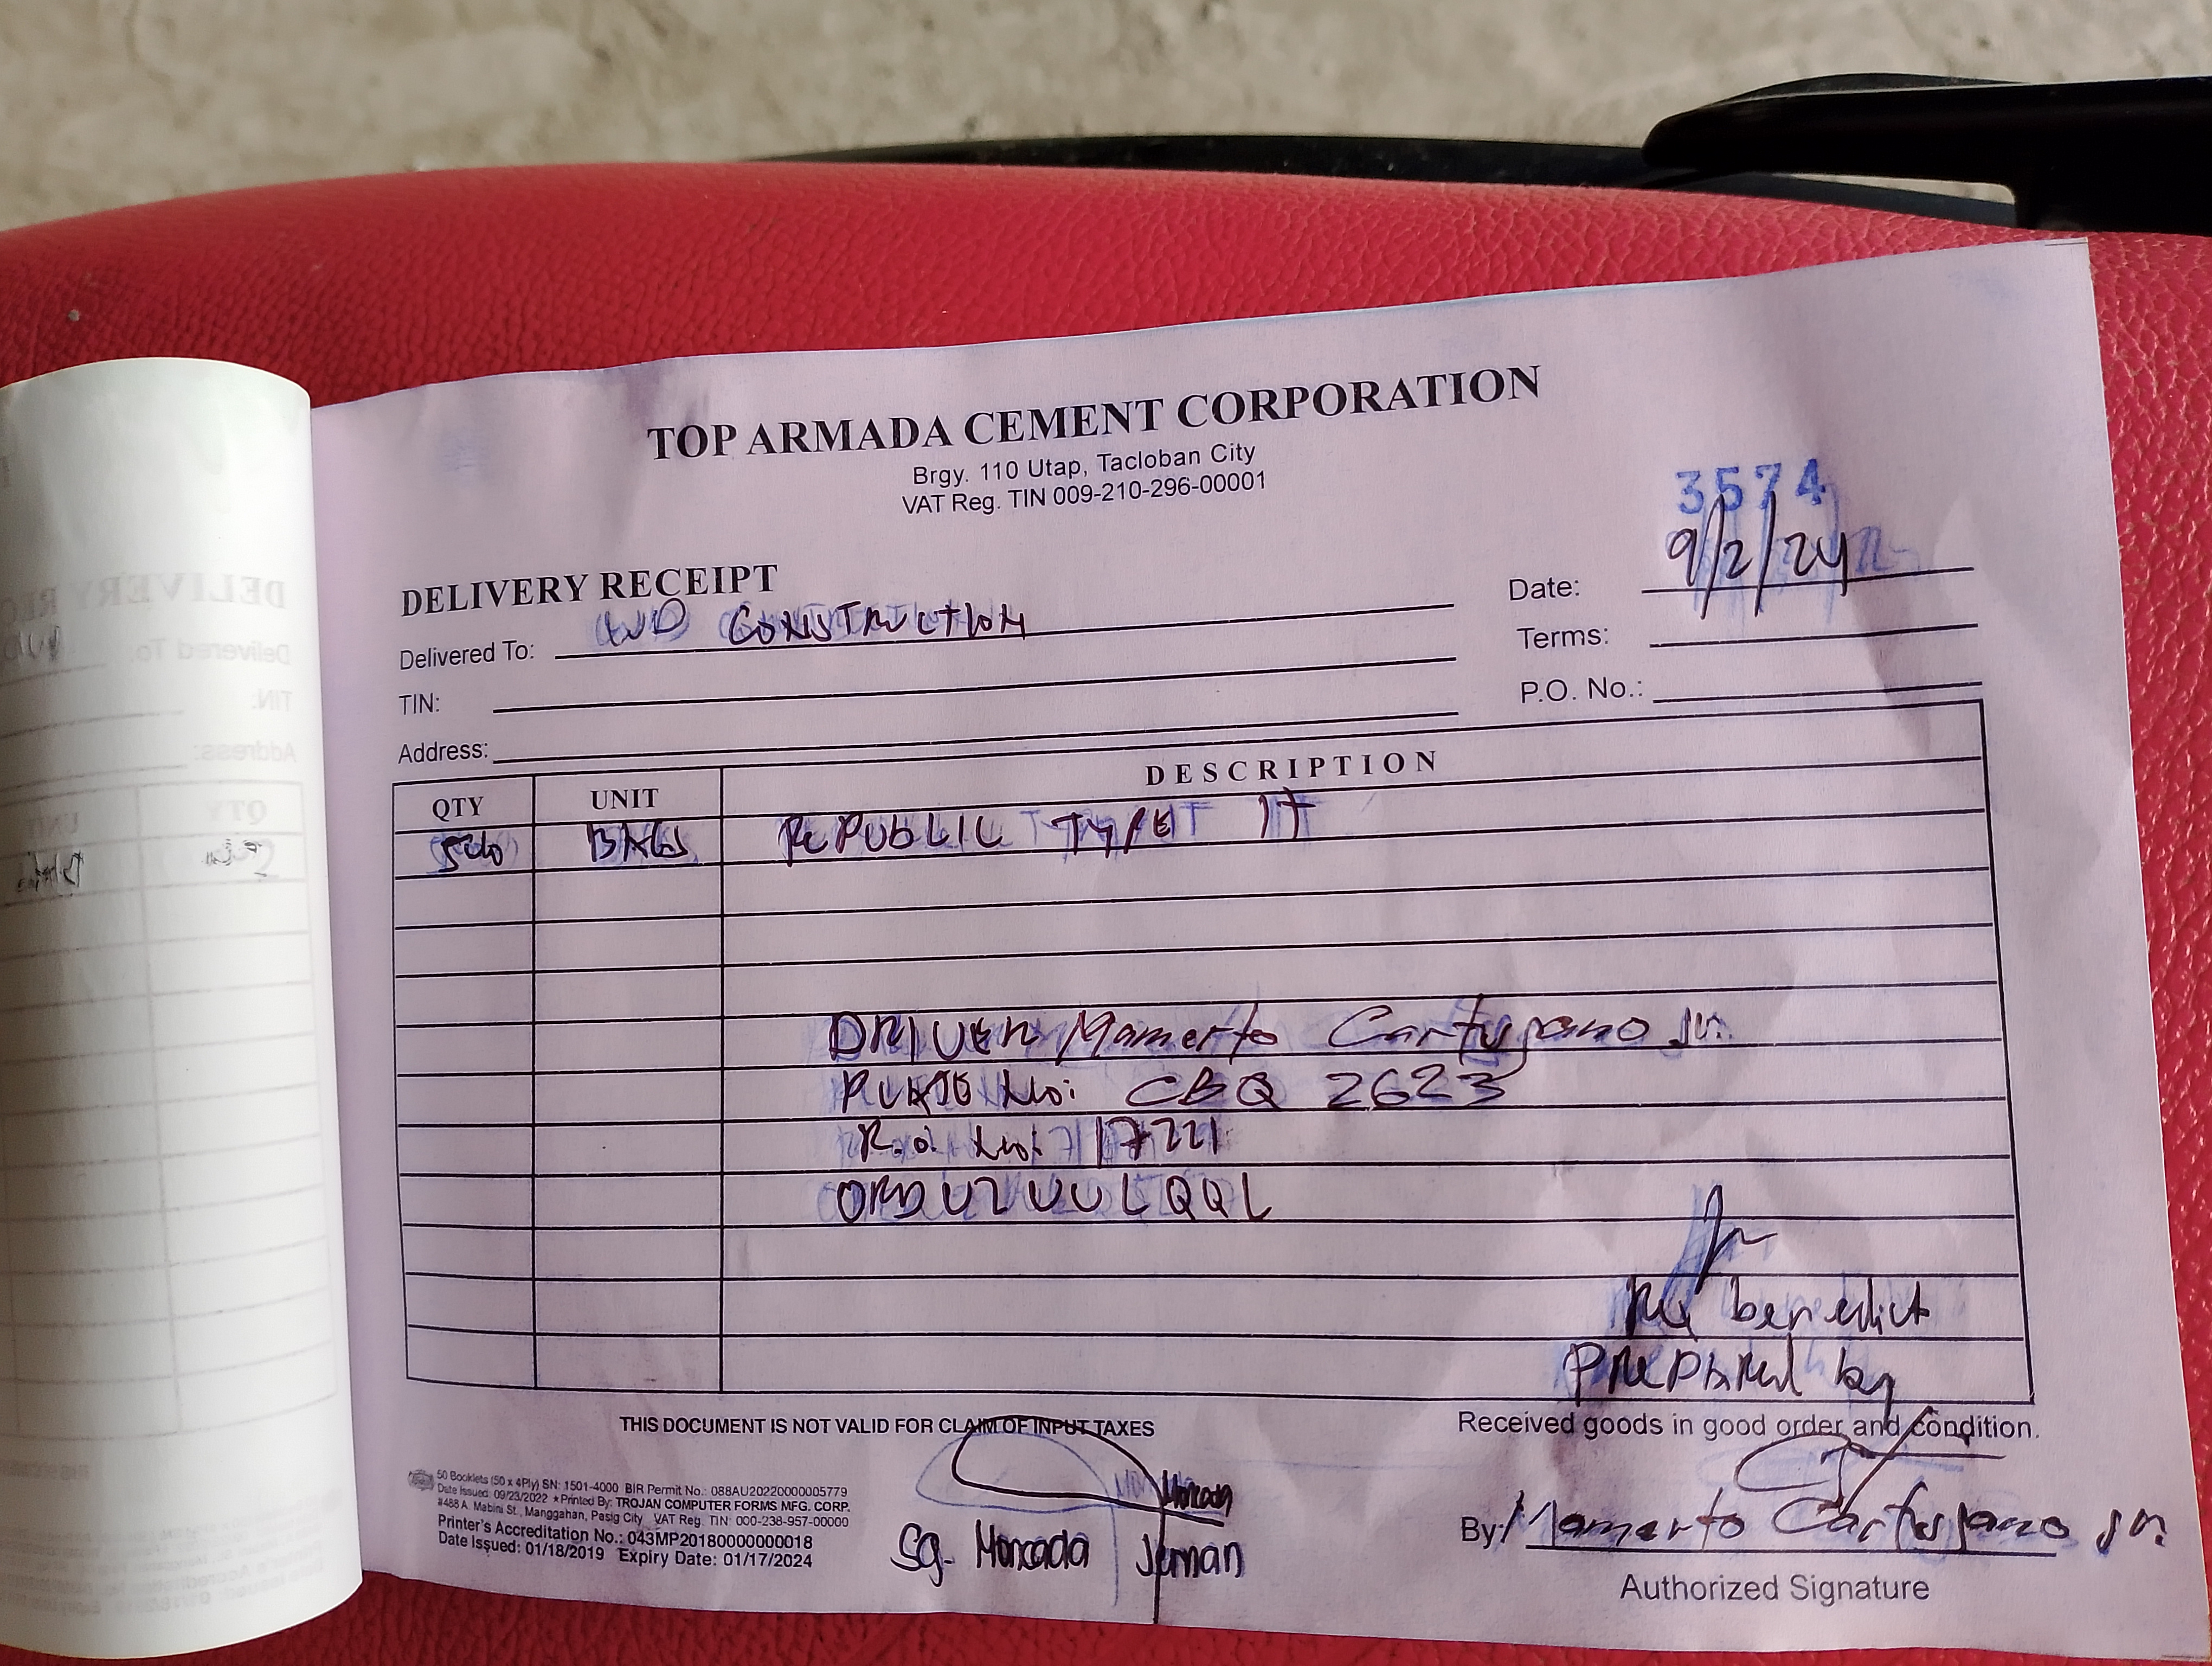 TOP ARMADA CEMENT CORPORATION
Brgy. 110 Utap, Tacloban City
VAT Reg. TIN 009-210-296-00001
3574
DELIVERY RECEIPT
Date: 9/2/24
Delivered To: CONSTRUCTION
Terms:
TIN:
P.O. No.:
Address:
QTY UNIT DESCRIPTION
BAGS REPUBLIC TYPE
DRIVER Mamerto Cartujano Jr.
PLATE No: CBQ 2623
17221
benedict
PREPARED by
THIS DOCUMENT IS NOT VALID FOR CLAIM OF INPUT TAXES
Received goods in good order and condition.
50 Booklets (50 x 4Ply) SN: 1501-4000 BIR Permit No.: 088AU20220000005779
Date Issued: 09/23/2022 * Printed By: TROJAN COMPUTER FORMS MFG. CORP.
#488 A. Mabini St., Manggahan, Pasig City VAT Reg. TIN: 000-238-957-00000
Printer's Accreditation No.: 043MP20180000000018
Date Issued: 01/18/2019 Expiry Date: 01/17/2024
Moncada
Sg. Moncada Jeman
By: Mamerto Cartujano Jr.
Authorized Signature